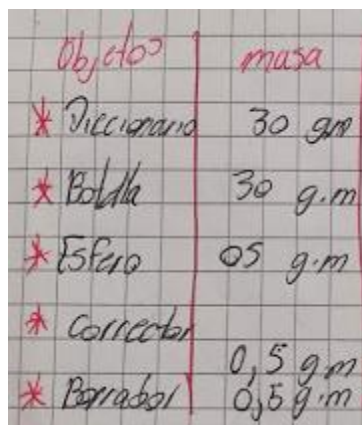 Objetos masa
* Diccionario 30 gm
* Botella 30 g.m
* Esfero 05 g.m
* Corrector
0,5 g m
* Borrador 0,5 g.m